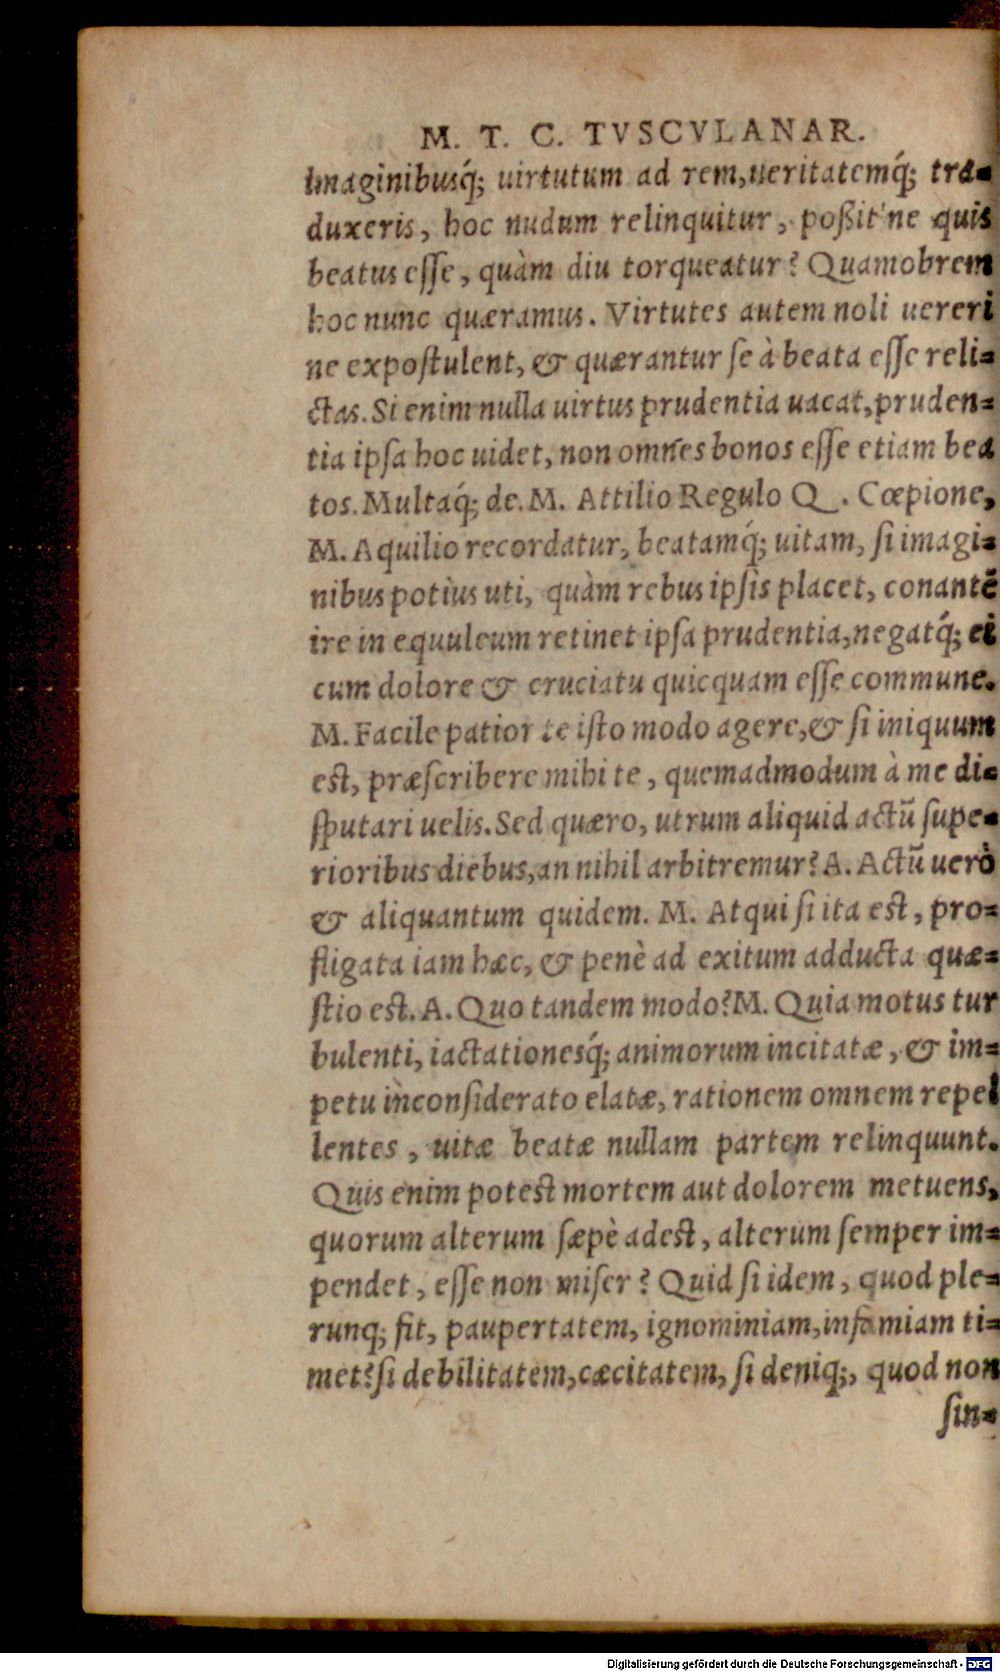 M. T. C. TVSCVLANAR.
Imaginibusq́; uirtutum ad rem, ueritatemq́; tra-
duxeris, hoc nudum relinquitur, poßit'ne quis
beatus eſſe, quàm diu torqueatur? Quamobrem
hoc nunc quæramus. Virtutes autem noli uereri
ne expoſtulent, & quærantur ſe à beata eſſe reli-
ctas. Si enim nulla uirtus prudentia uacat, pruden-
tia ipſa hoc uidet, non omnes bonos eſſe etiam bea
tos. Multaq́; de. M. Attilio Regulo Q. Cœpione,
M. Aquilio recordatur, beatamq́; uitam, ſi imagi-
nibus potiùs uti, quàm rebus ipſis placet, conantẽ
ire in equuleum retinet ipſa prudentia, negatq́; ei
cum dolore & cruciatu quicquam eſſe commune.
M. Facile patior te iſto modo agere, & ſi iniquum
est, præſcribere mihi te, quemadmodum à me di-
ſputari uelis. Sed quæro, utrum aliquid actũ ſupe-
rioribus diebus, an nihil arbitremur? A. Actũ uerò
& aliquantum quidem. M. Atqui ſi ita est, pro-
fligata iam hæc, & penè ad exitum adducta quæ-
ſtio est. A. Quo tandem modo? M. Quia motus tur
bulenti, iactationesq́; animorum incitatæ, & im-
petu inconſiderato elatæ, rationem omnem repel
lentes, uitæ beatæ nullam partem relinquunt.
Quis enim potest mortem aut dolorem metuens,
quorum alterum ſæpè adest, alterum ſemper im-
pendet, eſſe non miſer? Quid ſi idem, quod ple-
runq; fit, paupertatem, ignominiam, infamiam ti-
met? ſi debilitatem, cæcitatem, ſi deniq;, quod non
ſin-
Digitalisierung gefördert durch die Deutsche Forschungsgemeinschaft - DFG